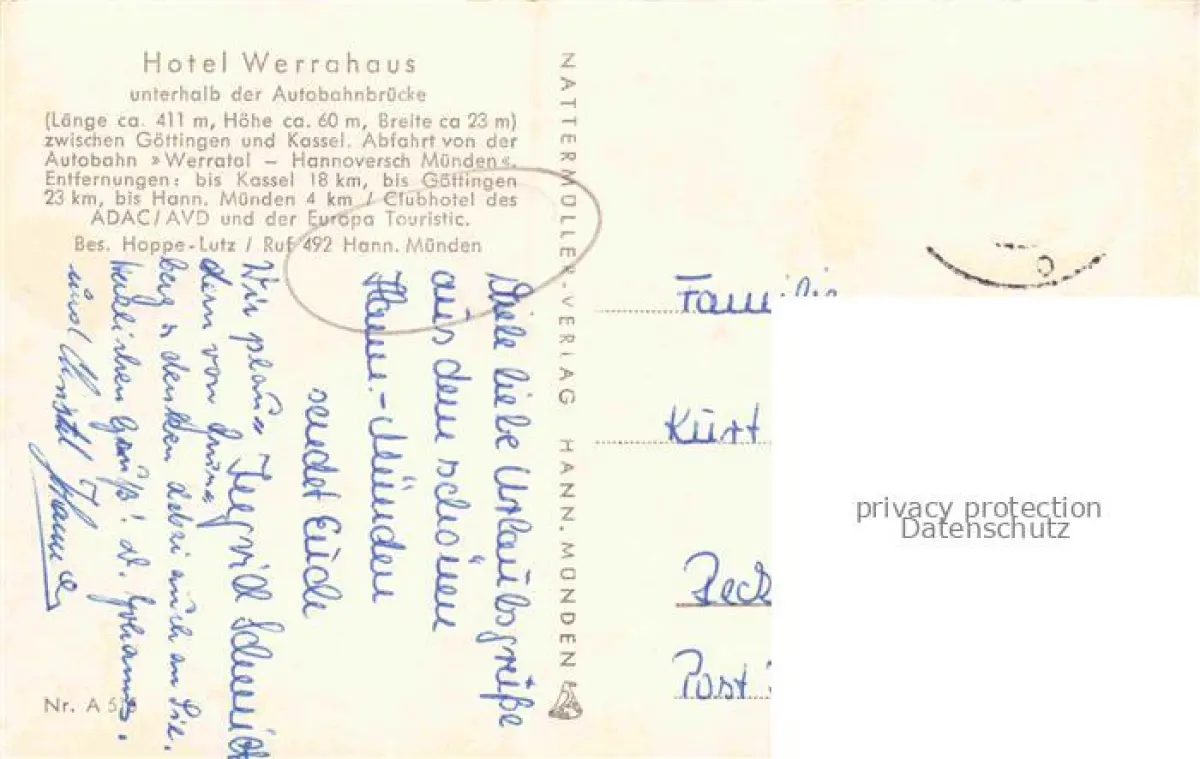 Hotel Werrahaus
unterhalb der Autobahnbrücke
(Länge ca. 411 m, Höhe ca. 60 m, Breite ca 23 m)
zwischen Göttingen und Kassel. Abfahrt von der
Autobahn »Werratal – Hannoversch Münden«.
Entfernungen: bis Kassel 18 km, bis Göttingen
23 km, bis Hann. Münden 4 km / Clubhotel des
ADAC/AVD und der Europa Touristic.
Bes. Hoppe-Lutz / Ruf 492 Hann. Münden
Viele liebe Urlaubsgrüße
aus dem schönen
Hann.-Münden
sendet Euch
Wir
denn von
berg denken dabei auch an Sie.
herzlichen Gruß!
und Hanne
Nr. A 5
NATTERMÜLLER-VERLAG HANN. MÜNDEN
Familie
Kurt
Beck
Post
privacy protection
Datenschutz